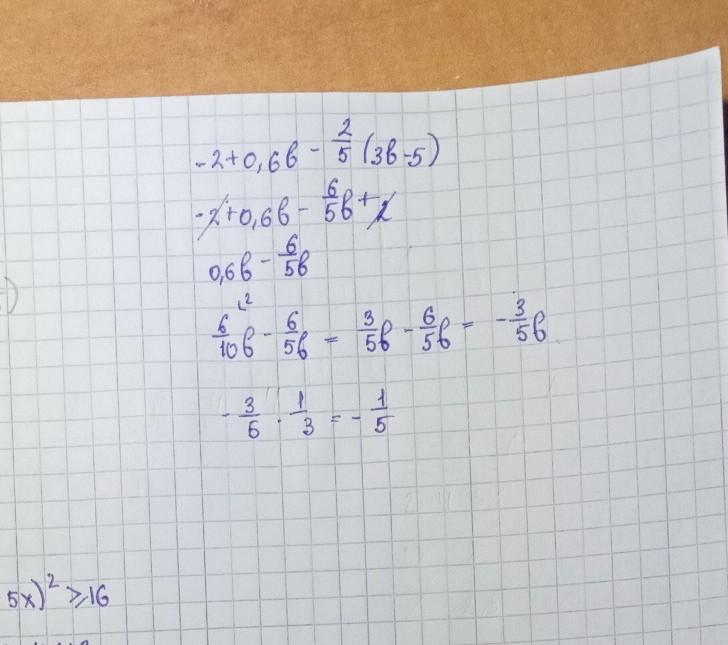 -2+0,6в - 2/5 (3в-5)
-2+0,6в - 6/5в + 2
0,6в - 6/5в
6/10в - 6/5в = 3/5в - 6/5в = - 3/5в
- 3/5 · 1/3 = - 1/5
5x)² ≥ 16